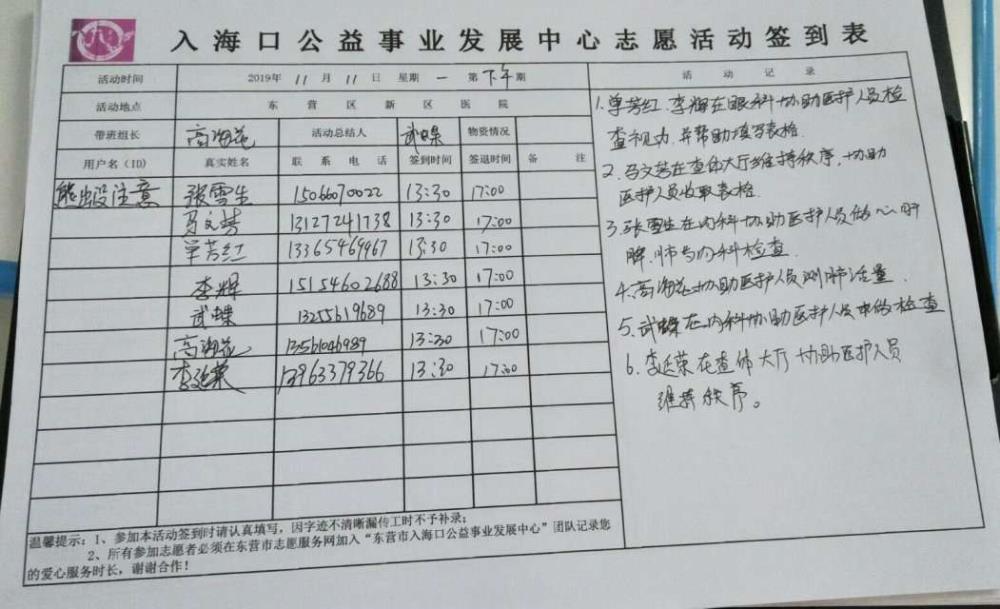 入海口公益事业发展中心志愿活动签到表
活动时间 2019年 11 月 11 日 星期 一 第 下午 期
活动地点 东营区新区医院
带班组长 高海花 活动总结人 武蝶 物资情况
用户名（ID） 真实姓名 联系电话 签到时间 签退时间 备注
熊出没注意 张雪生 15066070022 13:30 17:00
马文芳 13127241738 13:30 17:00
单芳红 13365469967 13:30 17:00
李辉 15154602688 13:30 17:00
武蝶 13255619689 13:30 17:00
高海花 13561046989 13:30 17:00
李廷荣 13963379366 13:30 17:00
温馨提示：1、参加本活动签到时请认真填写，因字迹不清晰漏传工时不予补录；
2、所有参加志愿者必须在东营市志愿服务网加入“东营市入海口公益事业发展中心”团队记录您
的爱心服务时长，谢谢合作！
活动记录
1.单芳红.李辉在眼科协助医护人员检
查视力.并帮助填写表格.
2.马文芳在查体大厅维持秩序.协助
医护人员收取表格.
3.张雪生在内科协助医护人员做心肝
脾.肺与内科检查.
4.高海花协助医护人员测肺活量.
5.武蝶在内科协助医护人员做检查
6.李廷荣在查体大厅协助医护人员
维持秩序。